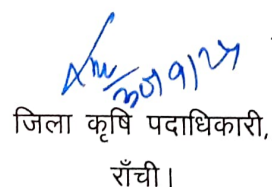 30/9/24
जिला कृषि पदाधिकारी,
राँची।